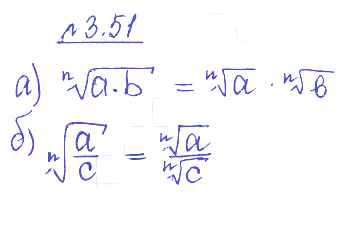 №3.51
а) ⁿ√(a·b) = ⁿ√a · ⁿ√в
б) ⁿ√(a/c) = ⁿ√a / ⁿ√c